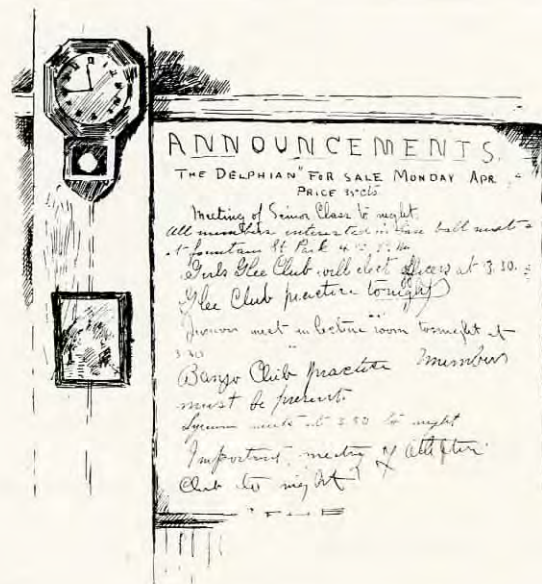 ANNOUNCEMENTS.
THE DELPHIAN" FOR SALE MONDAY APR.
PRICE 35 cts
Meeting of Senior Class to night.
All members interested in base ball meet
at fountain St Park
Girls Glee Club will elect officers at 3.30.
Glee Club practice tonight
Juniors meet in lecture room tonight at
3.30
Banjo Club practice members
must be present.
Lyceum meets at 3.30 to night
Important meeting of Athletic
Club to night